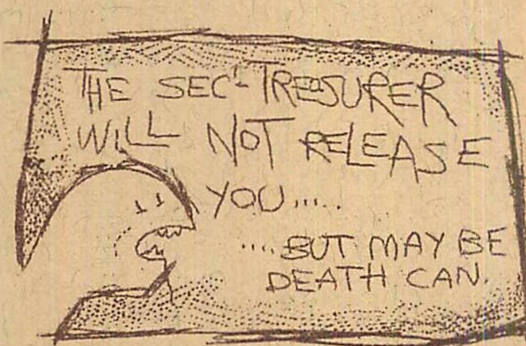 THE SEC'-TREASURER
WILL NOT RELEASE
YOU.....
....BUT MAY BE
DEATH CAN.